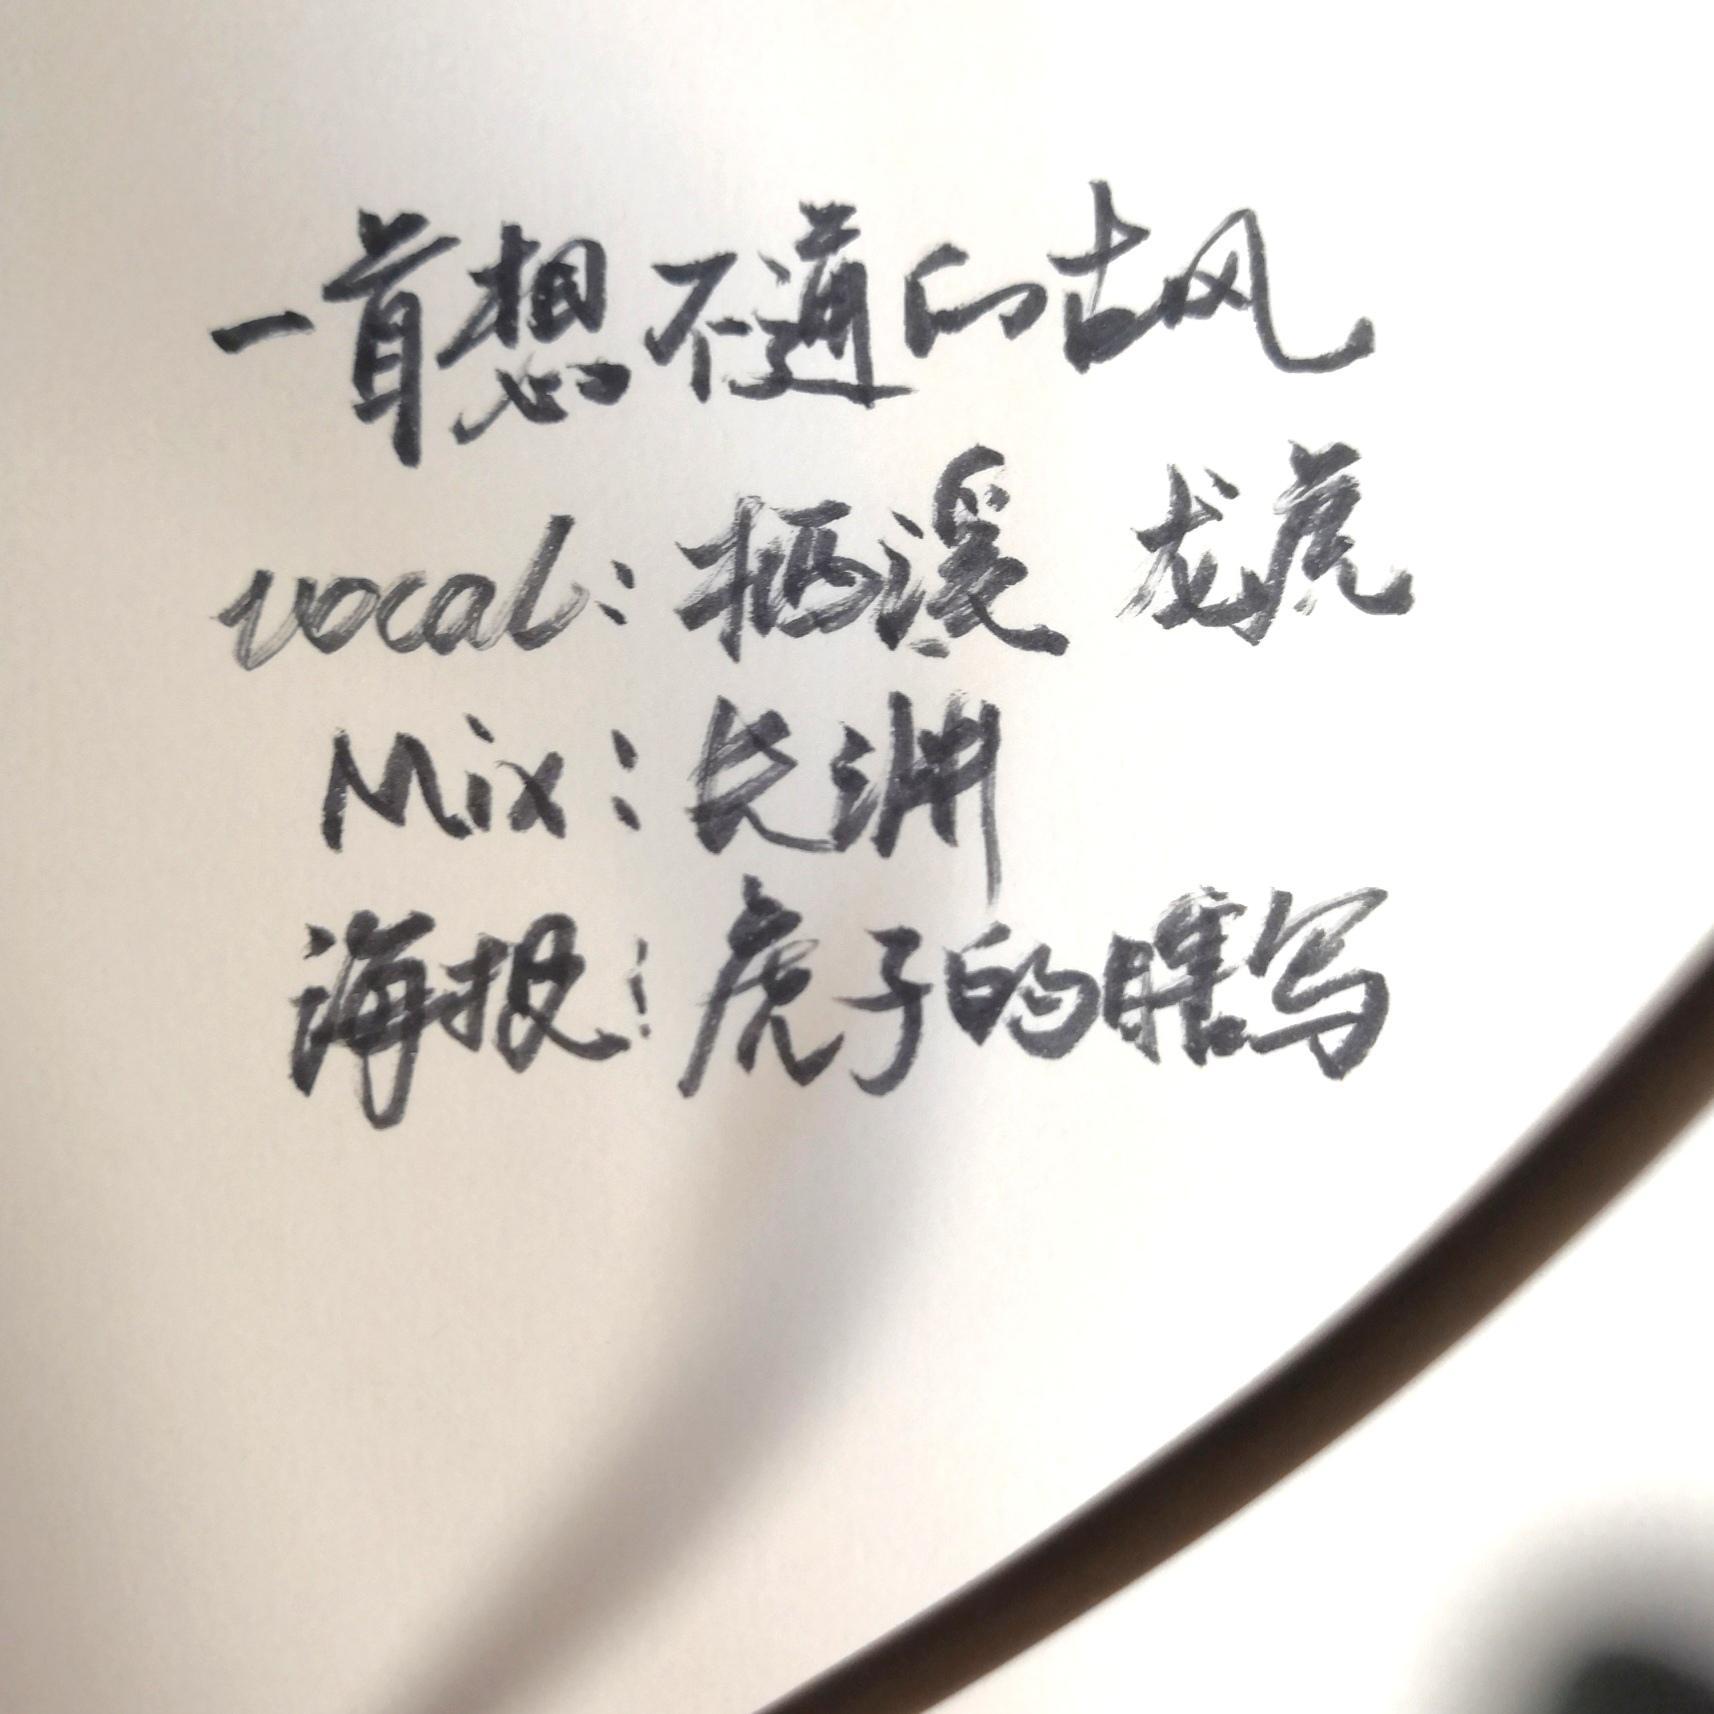 一首想不通的古风
vocal: 栖溪 龙虎
Mix: 长渊
海报: 虎子的瞎写